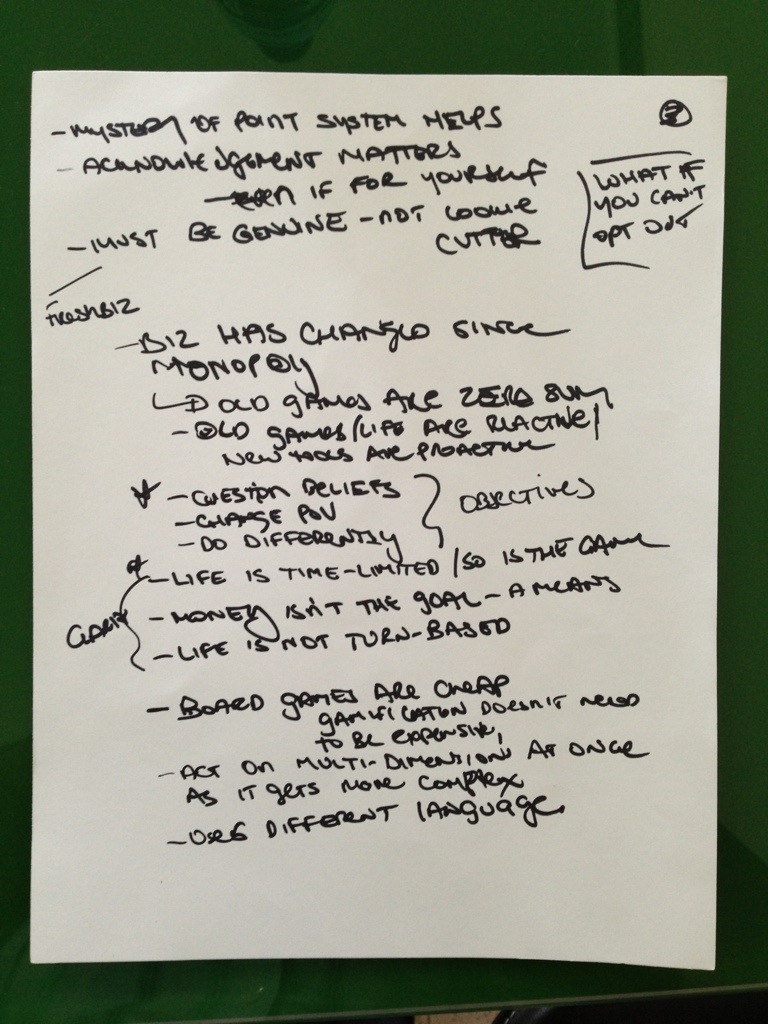 - MYSTERY OF POINT SYSTEM HELPS
- ACKNOWLEDGEMENT MATTERS
- EVEN IF FOR YOURSELF
- MUST BE GENUINE - NOT COOKIE
CUTTER
WHAT IF
YOU CAN'T
OPT OUT
FRESHBIZ
- BIZ HAS CHANGED SINCE
MONOPOLY
OLD GAMES ARE ZERO SUM
- OLD GAMES/LIFE ARE REACTIVE/
NEW ARE PROACTIVE
- QUESTION BELIEFS
- CHANGE POV
- DO DIFFERENTLY
OBJECTIVES
- LIFE IS TIME-LIMITED/SO IS THE GAME
- MONEY ISN'T THE GOAL - A MEANS
- LIFE IS NOT TURN-BASED
CLARITY
- BOARD GAMES ARE CHEAP
GAMIFICATION DOESN'T NEED
TO BE EXPENSIVE,
- ACT ON MULTI-DIMENSIONS AT ONCE
AS IT GETS MORE COMPLEX
- USES DIFFERENT LANGUAGE